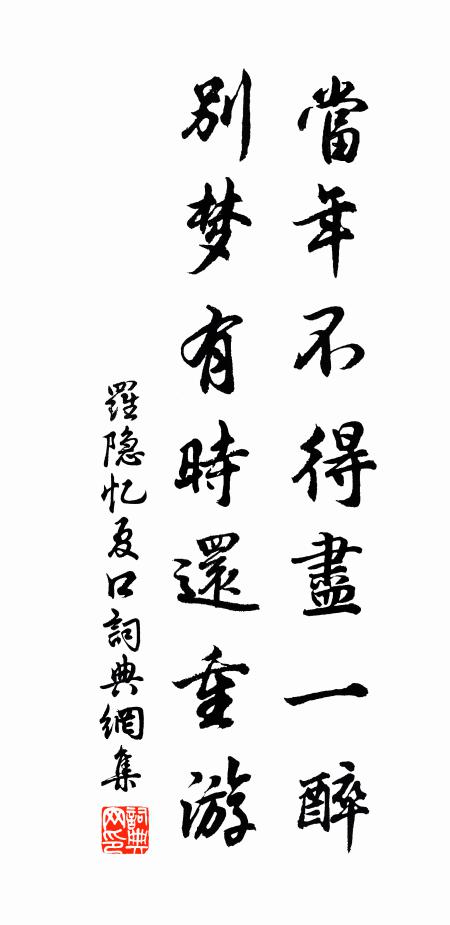 當年不得盡一醉
別梦有時還重游
羅隐忆夏口詞典網集
詞典网印